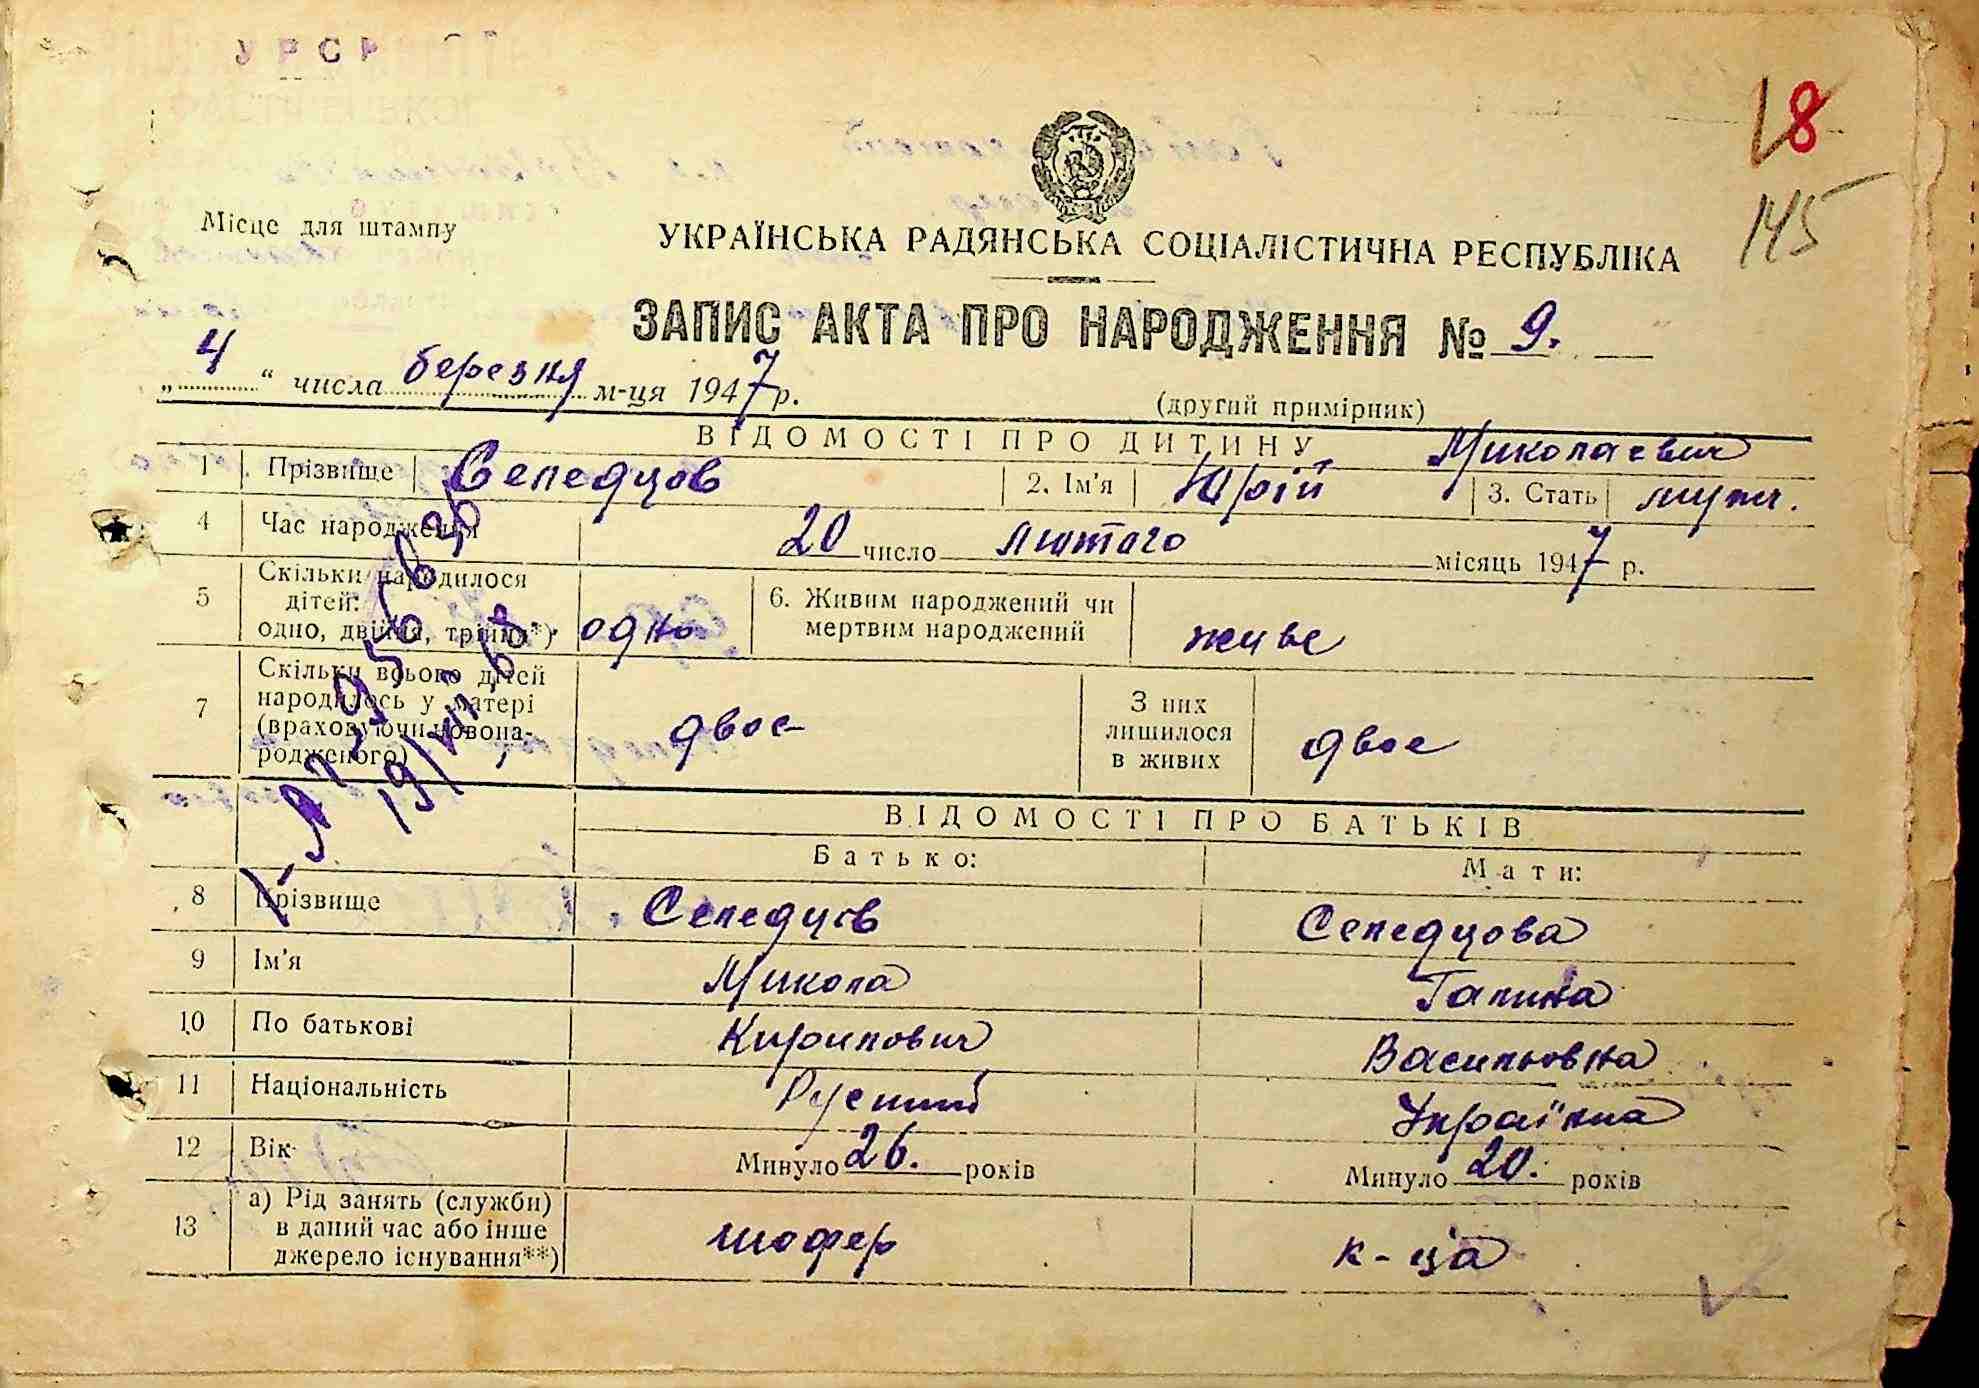 УРСР
18
145
Місце для штампу
УКРАЇНСЬКА РАДЯНСЬКА СОЦІАЛІСТИЧНА РЕСПУБЛІКА
ЗАПИС АКТА ПРО НАРОДЖЕННЯ № 9.
„4“ числа березня м-ця 1947 р.
(другий примірник)
ВІДОМОСТІ ПРО ДИТИНУ
Миколаевич
1 Прізвище Селедцов 2. Ім'я Юрій 3. Стать мужч.
4 Час народження 20 число лютого місяць 1947 р.
5 Скільки народилося
дітей:
одно, двійня, трійня*) одно
6. Живим народжений чи
мертвим народжений живе
7 Скільки всього дітей
народилось у матері
(враховуючи новона-
родженого) двое
З них
лишилося
в живих двое
19/VII 68
ВІДОМОСТІ ПРО БАТЬКІВ
Батько: Мати:
8 Прізвище Селедцов Селедцова
9 Ім'я Микола Галина
10 По батькові Кирилович Васильовна
11 Національність Руський Українка
12 Вік Минуло 26. років Минуло 20. років
13 а) Рід занять (служби)
в даний час або інше
джерело існування**) шофер к-ца